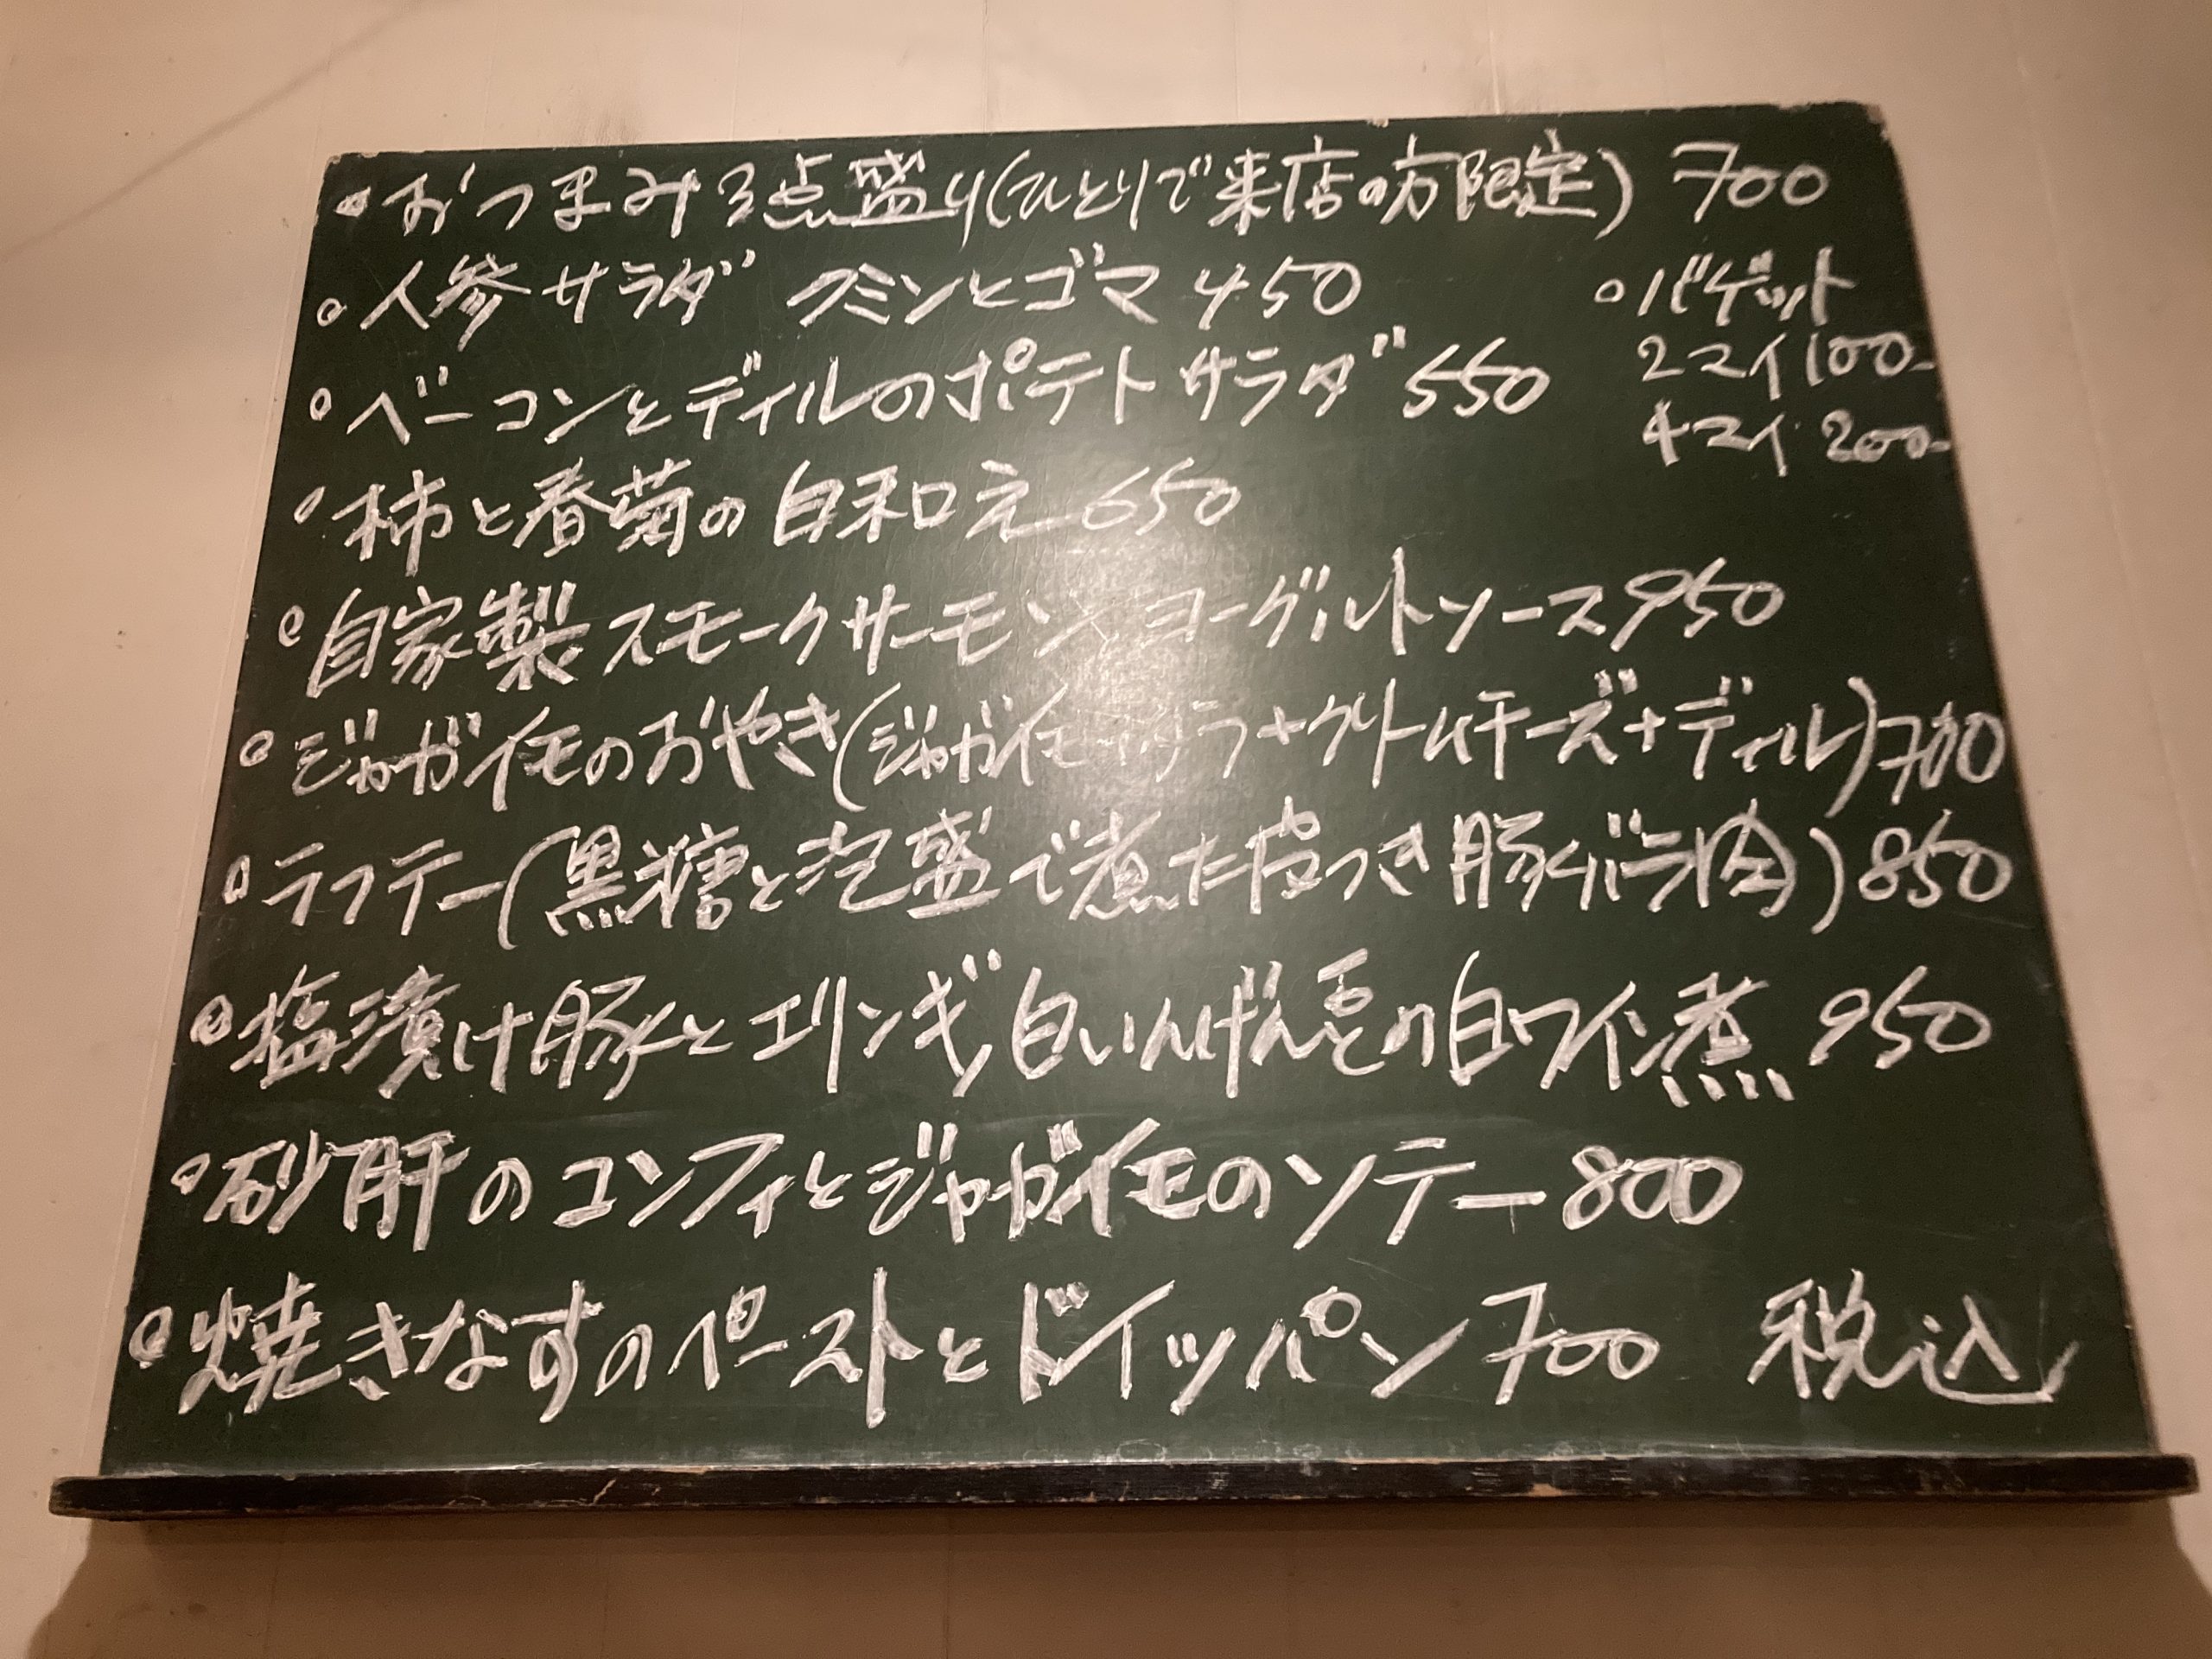 おつまみ3点盛り(ひとりで来店の方限定) 700
人参サラダ クミンとゴマ 450
バゲット
2マイ 100-
4マイ 200-
ベーコンとディルのポテトサラダ 550
柿と春菊の白和え 650
自家製スモークサーモン ヨーグルトソース 950
ジャガイモのおやき(ジャガイモ+クリームチーズ+ディル) 700
ラフテー(黒糖と泡盛で煮た皮つき豚バラ肉) 850
塩漬け豚とエリンギ、白いんげん豆の白ワイン煮 950
砂肝のコンフィとジャガイモのソテー 800
焼きなすのペーストとドイツパン 700 税込